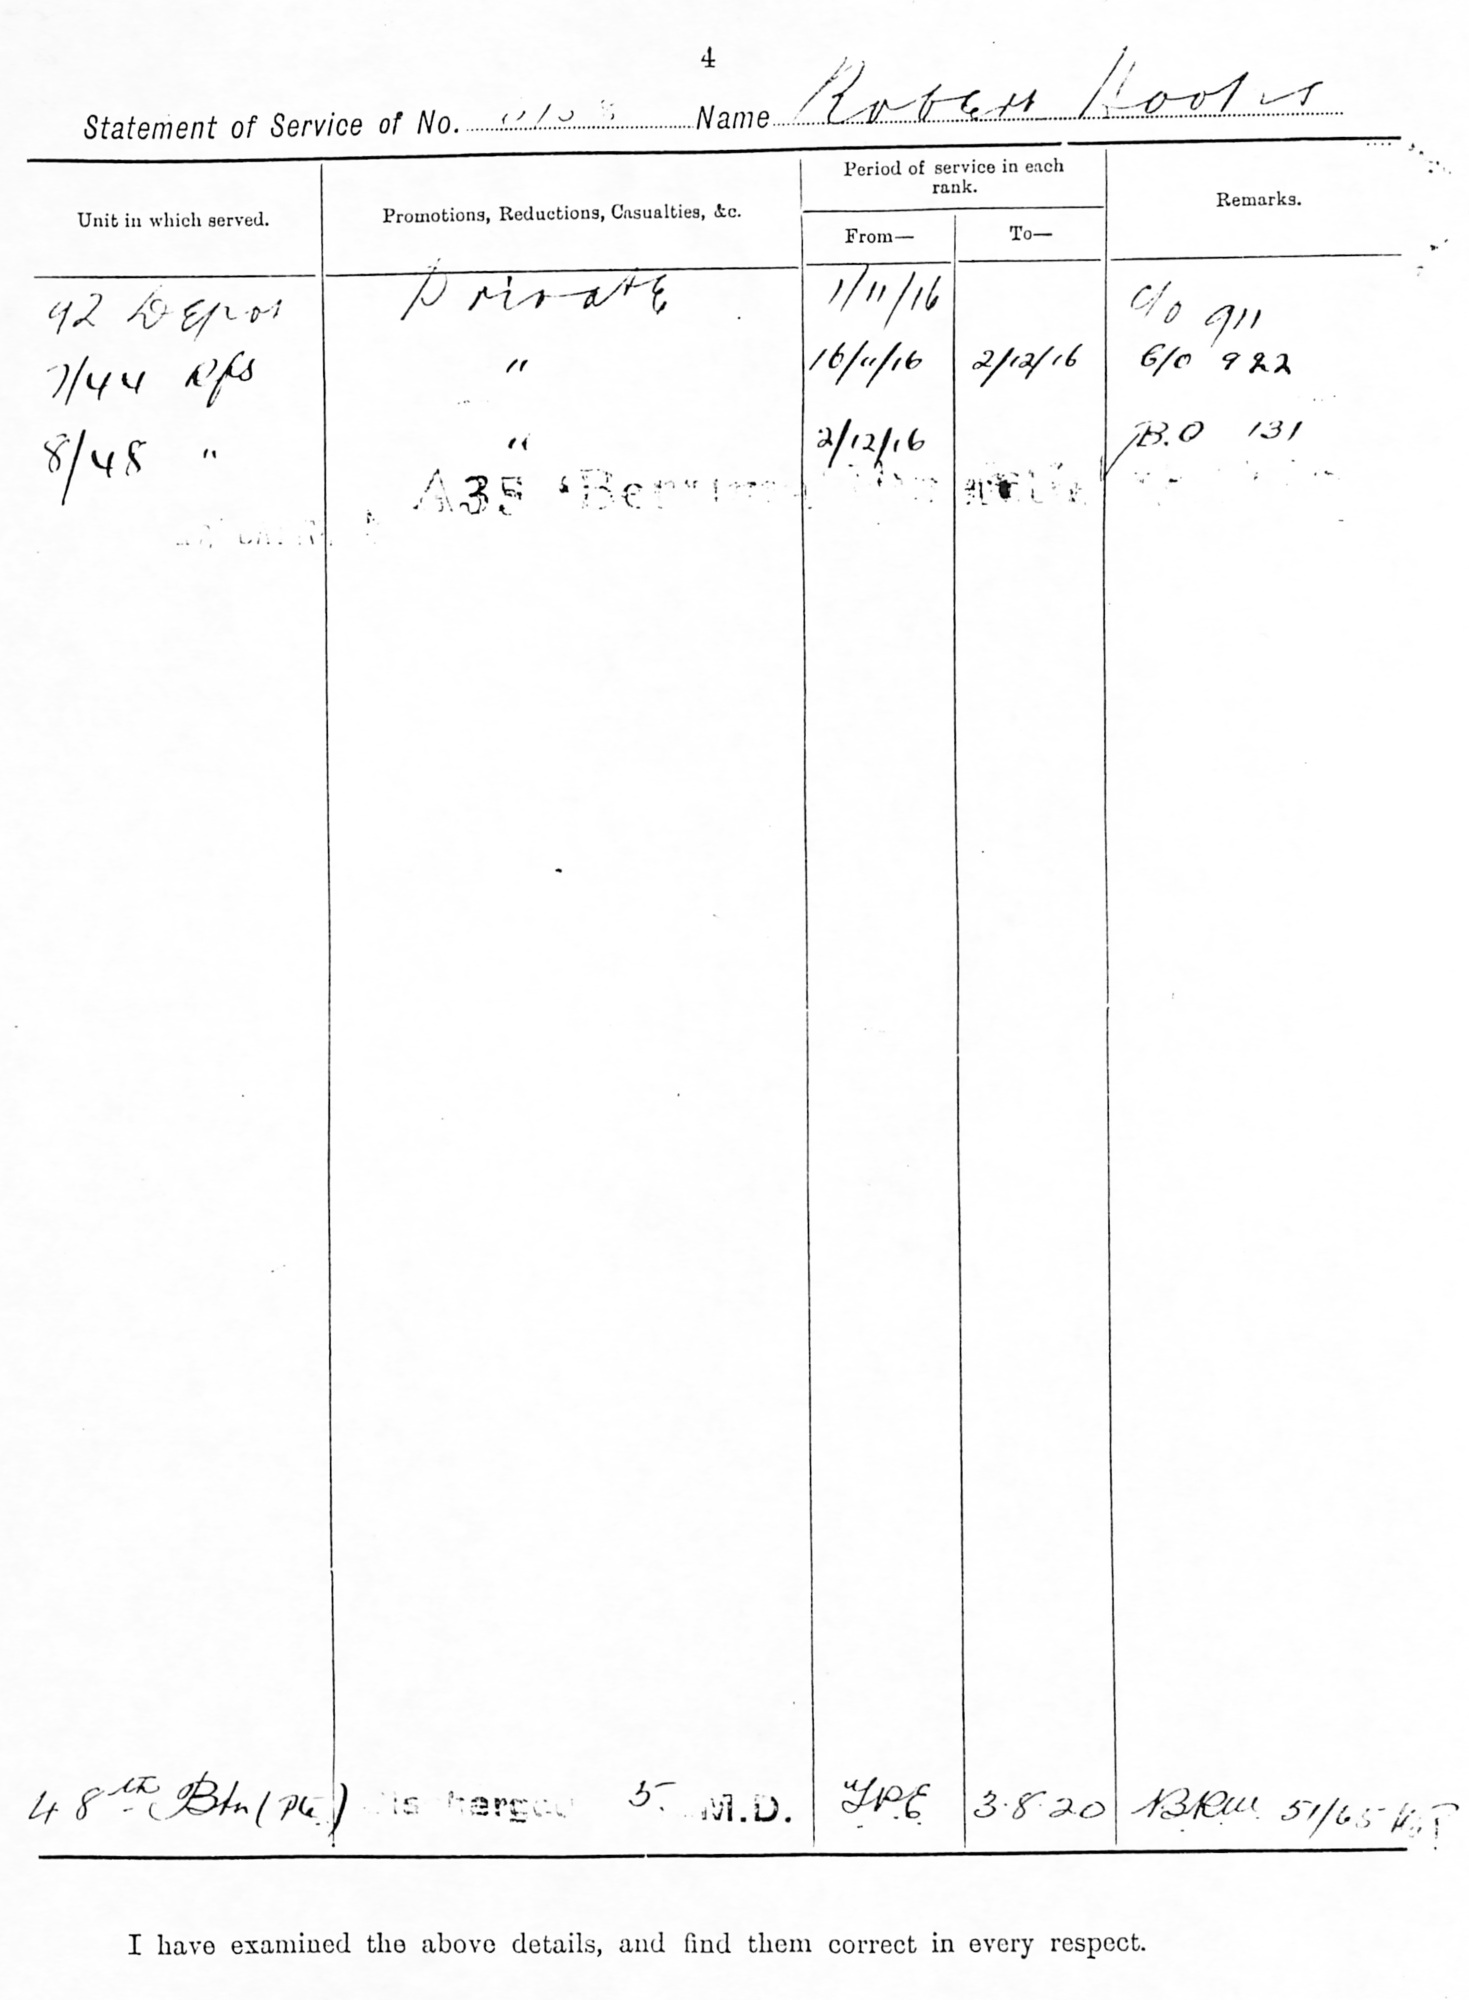 4
Statement of Service of No. Name Robert
Unit in which served. Promotions, Reductions, Casualties, &c. Period of service in each rank. From— To— Remarks.
92 Depot Private 1/11/16 C/O 911
7/44 Rfs " 16/11/16 2/12/16 C/O 922
8/48 " " 2/12/16 B.O 131
A35
48th Btn (Pte) Discharged 5 M.D. T.P.E 3.8.20 51/65
I have examined the above details, and find them correct in every respect.